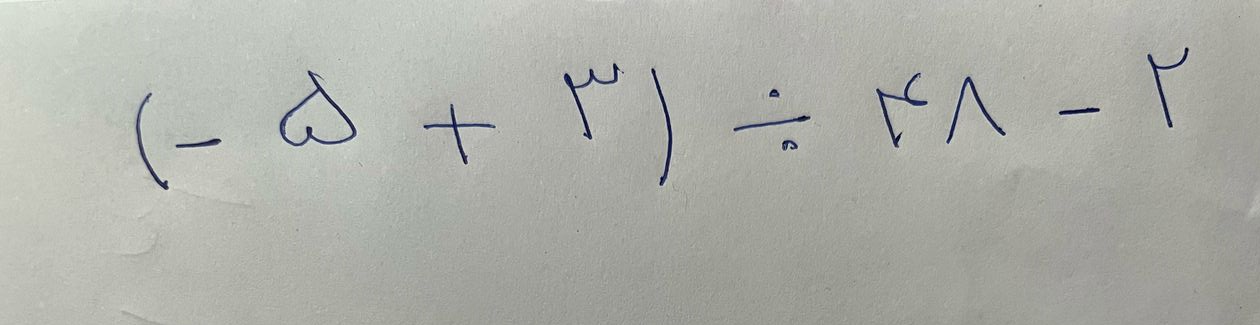 (- ۵ + ۳) ÷ ۴۸ - ۲